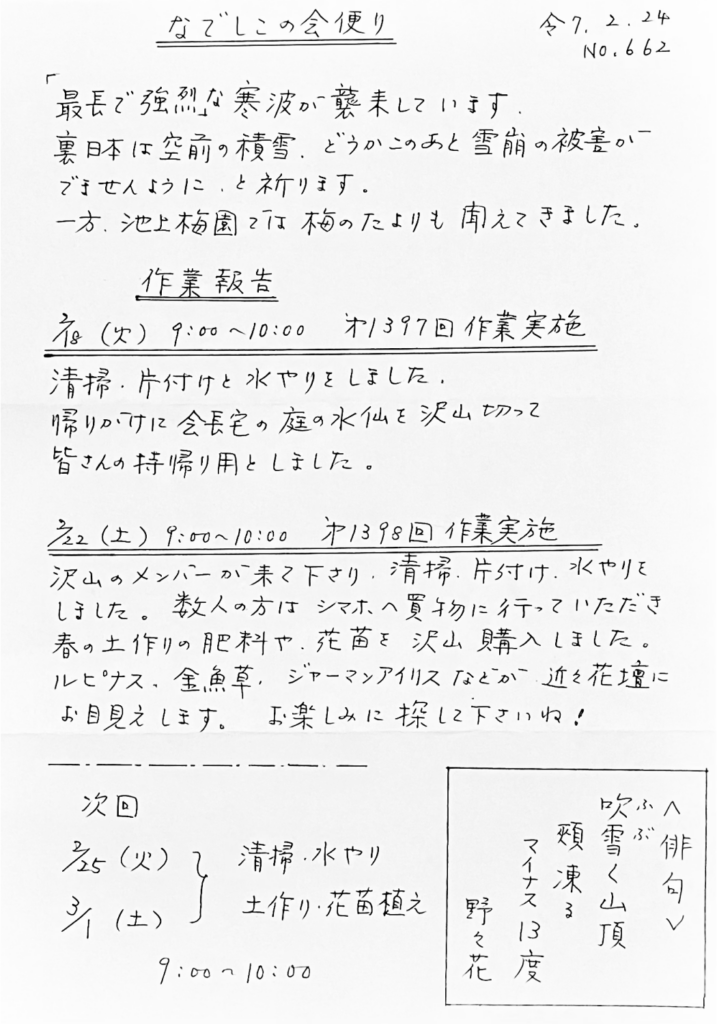 なでしこの会便り
令7.2.24
NO.662
「最長で強烈」な寒波が襲来しています.
裏日本は空前の積雪. どうかこのあと雪崩の被害が
でませんように、と祈ります。
一方、池上梅園では梅のたよりも聞えてきました。
作業報告
2/18(火) 9:00～10:00 㐧1397回作業実施
清掃、片付けと水やりをしました.
帰りがけに会長宅の庭の水仙を沢山切って
皆さんの持帰り用としました。
2/22(土) 9:00～10:00 㐧1398回作業実施
沢山のメンバーが来て下さり、清掃、片付け、水やりを
しました。数人の方はシマホへ買物に行っていただき
春の土作りの肥料や、花苗を沢山購入しました。
ルピナス、金魚草、ジャーマンアイリスなどが近々花壇に
お目見えします。 お楽しみに探して下さいね!
次回
2/25(火)
3/1(土)
清掃・水やり
土作り・花苗植え
9:00～10:00
<俳句>
ふぶ
吹雪く山頂
頬凍る
マイナス13度
野々花